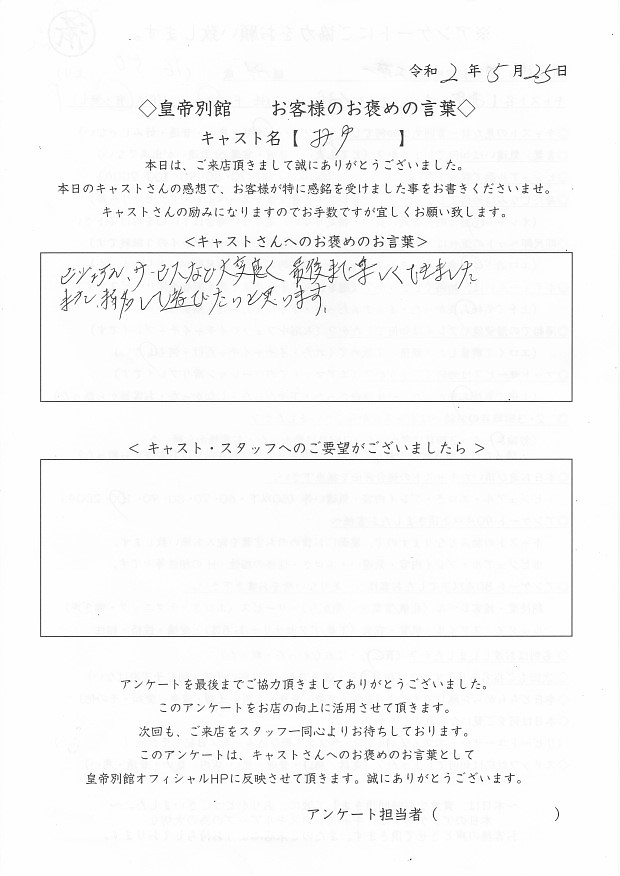 令和 2 年 5 月 25 日
◇皇帝別館　お客様のお褒めの言葉◇
キャスト名【 みゆ 】
本日は、ご来店頂きまして誠にありがとうございました。
本日のキャストさんの感想で、お客様が特に感銘を受けました事をお書きくださいませ。
キャストさんの励みになりますのでお手数ですが宜しくお願い致します。
<キャストさんへのお褒めのお言葉>
ビジュアル、サービスなど大変良く最後まで楽しくできました
また、指名して遊びたいと思います。
< キャスト・スタッフへのご要望がございましたら >
アンケートを最後までご協力頂きましてありがとうございました。
このアンケートをお店の向上に活用させて頂きます。
次回も、ご来店をスタッフ一同心よりお待ちしております。
このアンケートは、キャストさんへのお褒めのお言葉として
皇帝別館オフィシャルHPに反映させて頂きます。誠にありがとうございます。
アンケート担当者（　　　　　　　）